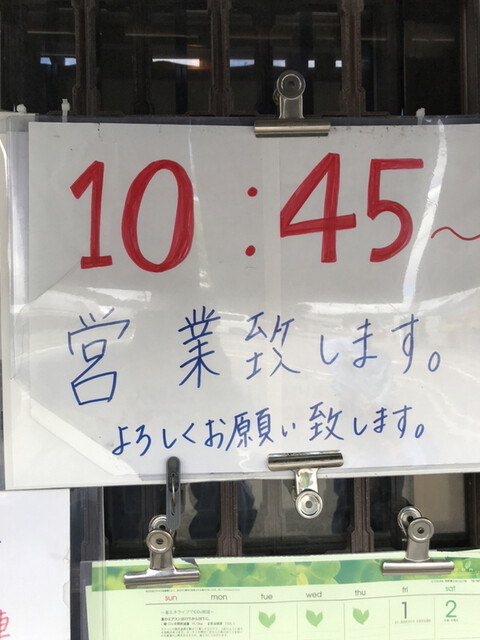 10:45～
営業致します。
よろしくお願い致します。
sun mon tue wed thu fri sat
1 2